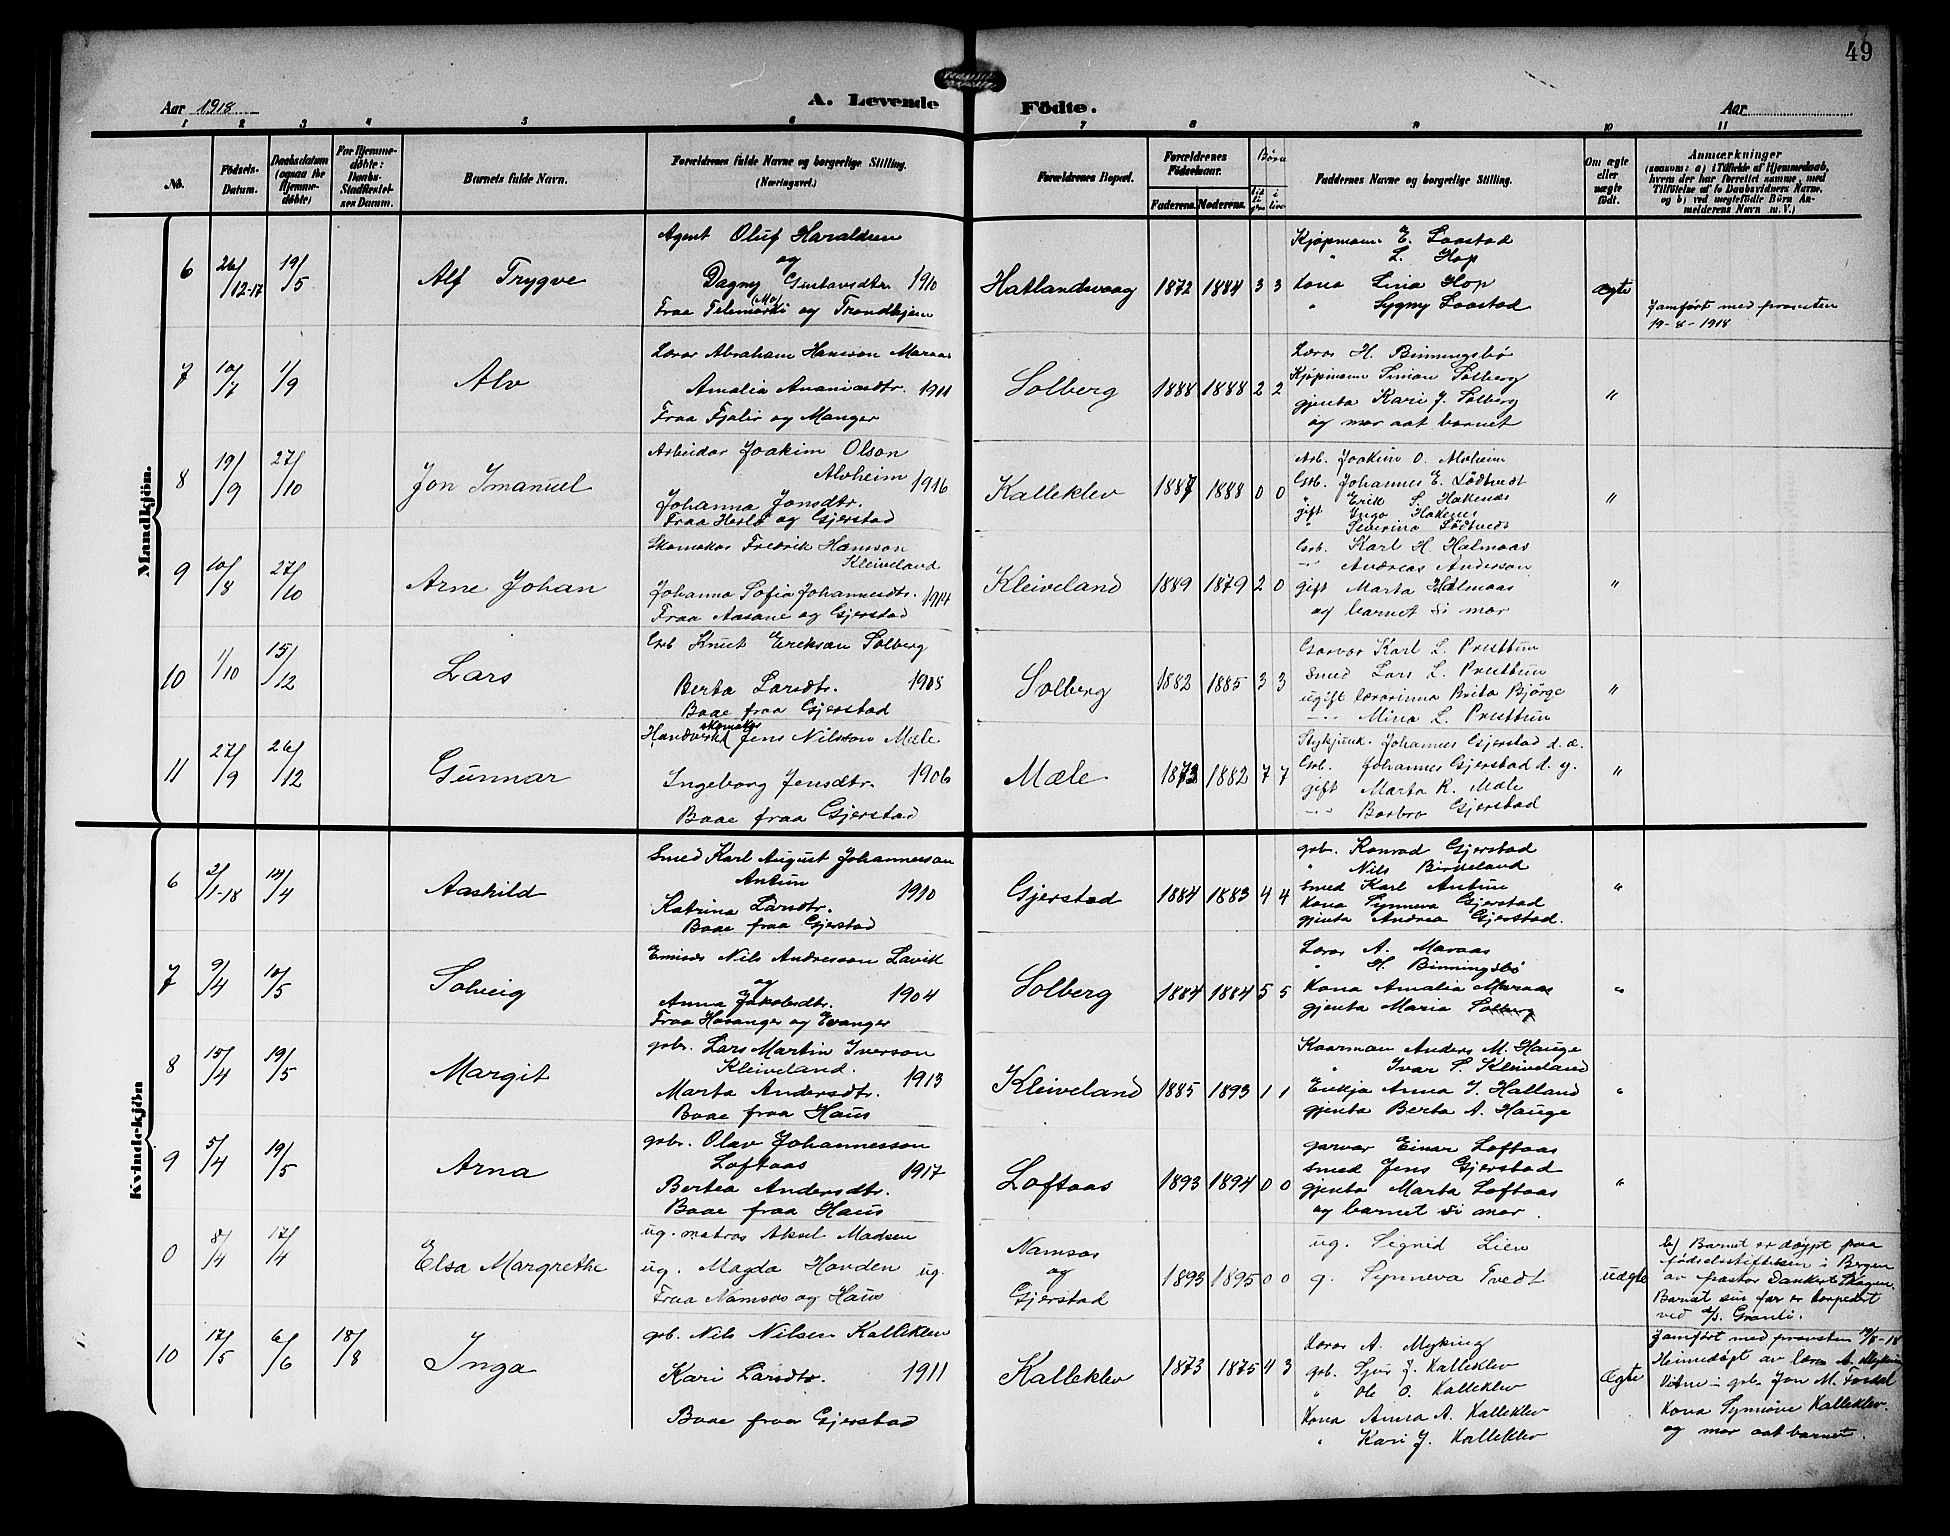 49
Aar 1918
A. Levende
Födte.
Aar
1 2 3 4 5 6 7 8 9 10 11
No.
Födsels-
Datum.
Daabsdatum
(ogsaa for
Hjemme-
døbte)
For Hjemme-
døbte:
Daabs-
Stadfæstel-
ses Datum.
Barnets fulde Navn.
Forældrenes fulde Navne og borgerlige Stilling.
(Næringsvei.)
Forældrenes Bopæl.
Forældrenes
Födselsaar.
Faderens. Moderens.
Börn
i
live
Faddernes Navne og borgerlige Stilling.
Om ægte
eller
uægte
födt.
Anmærkninger
(saasom: a) i Tilfælde af Hjemmedaab,
hvem der har forrettet samme, med
Tilföielse af to Daabsvidners Navne,
og b) ved uægtefödte Börn An-
melderens Navn m. V.)
Mandkjön.
6 26/12-17 19/5 Alf Trygve
Agent Oluf Haraldsen
og
Dagny Gustavsdtr. 1910
(Mo)
Fraa Telemarki og Trondhjem
Hatlandsvaag 1872 1884 3 3
Kjøpmann E. Loastad
" L. Hop
kona Lina Hop
" Sygny Loastad
ægte
Jamført med provsten
19-8-1918
7 10/7 1/9 Alv
Lærar Abraham Hansson Maraas
Amalia Ananiasdtr. 1911
Fraa Fjaler og Manger
Solberg 1888 1888 2 2
Lærar H. Binningsbø
Kjøpmann Simon Solberg
gjenta Kari J. Solberg
og mor aat barnet
"
8 19/9 27/10 Jon Imanuel
Arbeidar Joakim Olson
Alvheim 1916
Johanna Jonsdtr.
Fraa Herlø og Gjerstad
Kalleklev 1887 1888 0 0
Arb. Joakim O. Alvheim
Gsb. Johannes E. Lødtvedt
" Erik S. Hakenes
gift Inga Hakenes
" Severina Lødtvedt
"
9 10/8 27/10 Arne Johan
Skomakar Fredrik Hansson
Kleiveland
Johanna Sofia Johannesdtr. 1914
Fraa Aasane og Gjerstad
Kleiveland 1889 1879 2 0
Gsb. Karl H. Halmaas
-"- Andreas Anderson
gift Marta Halmaas
og barnet si mor
"
10 1/10 15/12 Lars
Gsb Knut Erikson Solberg
Berta Larsdtr. 1908
Baae fraa Gjerstad
Solberg 1882 1885 3 3
Garvar Karl L. Presttun
Smed Lars L. Presttun
ugift lærarinna Brita Bjørge
-"- Mina L. Presttun
"
11 27/9 26/12 Gunnar
skomakar
Handverkd Jens Nilsson Mæle
Ingeborg Jensdtr. 1906
Baae fraa Gjerstad
Mæle 1873 1882 7 7
Stykjunk. Johannes Gjerstad d. æ.
Gsb. Johannes Gjerstad d. y.
gift Marta K. Mæle
-"- Barbro Gjerstad
"
Kvindekjön
6 2/1-18 14/4 Aashild
Smed Karl August Johannesson
Antun
Katrina Larsdtr. 1910
Baae fraa Gjerstad
Gjerstad 1884 1883 4 4
gsb. Konrad Gjerstad
" Nils Birkeland
Smed Karl Antun
kona Synneva Gjerstad
gjenta Andrea Gjerstad.
"
7 9/4 10/5 Solveig
Emissær Nils Andresson Lavik
og
Anna Jakobsdtr. 1904
Fraa Hosanger og Evanger
Solberg 1884 1884 5 5
Lærar A. Maraas
" H. Binningsbø
Kona Amalia Maraas
gjenta Maria Solberg
"
8 15/4 19/5 Margit
gsbr. Lars Martin Iverson
Kleiveland. 1913
Marta Andersdtr.
Baae fraa Haus
Kleiveland 1885 1893 1 1
Kaarmann Anders M. Hauge
" Ivar S. Kleiveland
Enkja Anna I. Hatland
gjenta Berta A. Hauge
"
9 5/4 19/5 Arna
gsbr. Olav Johannesson
Loftaas 1917
Bertea Andersdtr.
Baae fraa Haus
Loftaas 1893 1894 0 0
garvar Einar Loftaas
smed Jens Gjerstad
gjenta Marta Loftaas
og barnet si mor.
"
0 8/4 17/4 Elsa Margrethe
ug. matros Aksel Madsen
ug. Magda Hovden ug.
Fraa Namsos og Haus
Namsos
og
Gjerstad
1893 1895 0 0
ug. Signid Lien
g. Synneva Tvedt
uægte
b) Barnet er døypt paa
fødselsstiftelsen i Bergen
av pastor Dankert Skagen.
Barnet sin far er torpedert
ved d/s. Granli.
10 17/5 6/6 18/8 Inga
gsb. Nils Nilsen Kalleklev
Kari Larsdtr. 1911
Baae fraa Gjerstad
Kalleklev 1873 1875 4 3
Lærar A. Myking
gsb. Sjur J. Kalleklev
" Ole O. Kalleklev
Kona Anna A. Kalleklev
" Kari J. Kalleklev
Ægte
Jamført med provsten 19/8-18
Heimedøypt av lærar A. Myking
Vitne: gsb. Jon M.
Kona Synnøve Kalleklev.
og mor aat barnet.